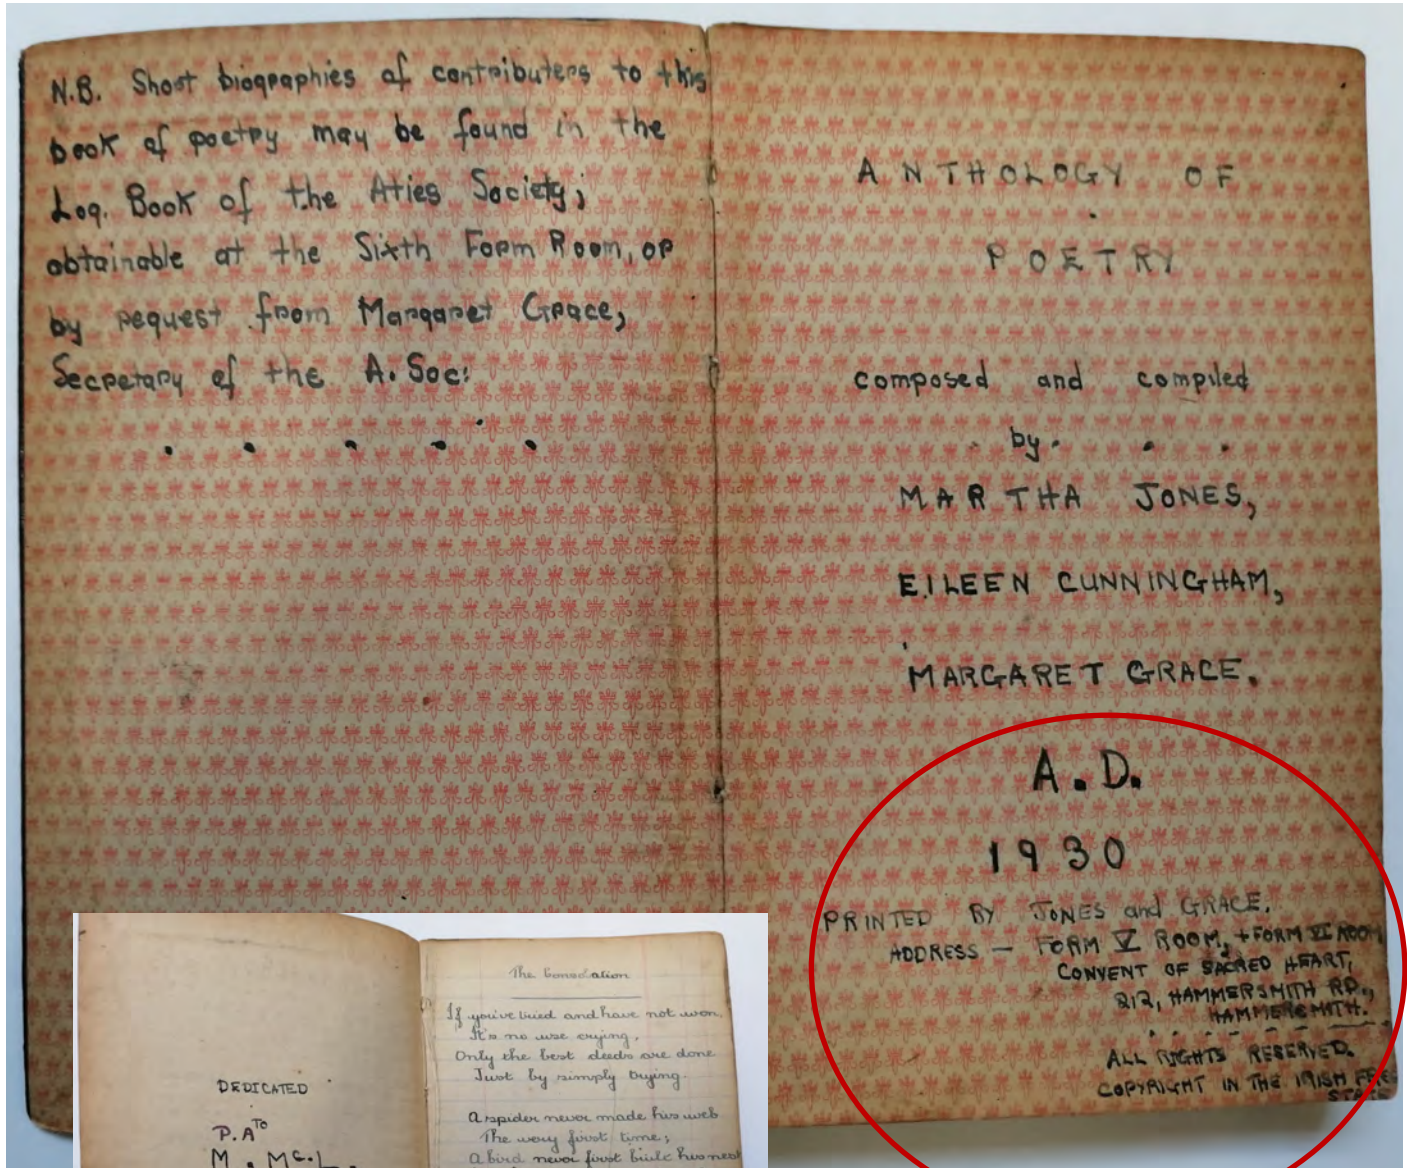 N.B. Short biographies of contributers to this
book of poetry may be found in the
Log. Book of the Aties Society;
obtainable at the Sixth Form Room, or
by request from Margaret Grace,
Secretary of the A. Soc:
ANTHOLOGY OF
POETRY
composed and compiled
by
MARTHA JONES,
EILEEN CUNNINGHAM,
MARGARET GRACE.
A.D.
1930
PRINTED BY JONES and GRACE.
ADDRESS — FORM V ROOM, + FORM VI ROOM
CONVENT OF SACRED HEART,
212, HAMMERSMITH RD.,
HAMMERSMITH.
ALL RIGHTS RESERVED.
COPYRIGHT IN THE IRISH FREE
STATE
DEDICATED
TO
P.A
M. Mc.L.
The Consolation
If you've tried and have not won,
It's no use crying,
Only the best deeds are done
Just by simply trying.
A spider never made his web
The very first time;
A bird never first built his nest